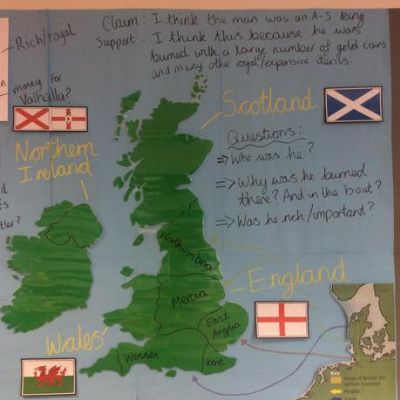 Claim: I think the man was an A-S king
Support: I think this because he was
buried with a large number of gold coins
and many other royal/expensive items.
Rich/royal
money for
Valhalla?
Scotland
Northern
Ireland
Questions:
⇒ Who was he?
⇒ Why was he buried
there? And in the boat?
⇒ Was he rich/important?
Northumbria
England
Mercia
East
Anglia
Wales
Wessex
Kent
Key